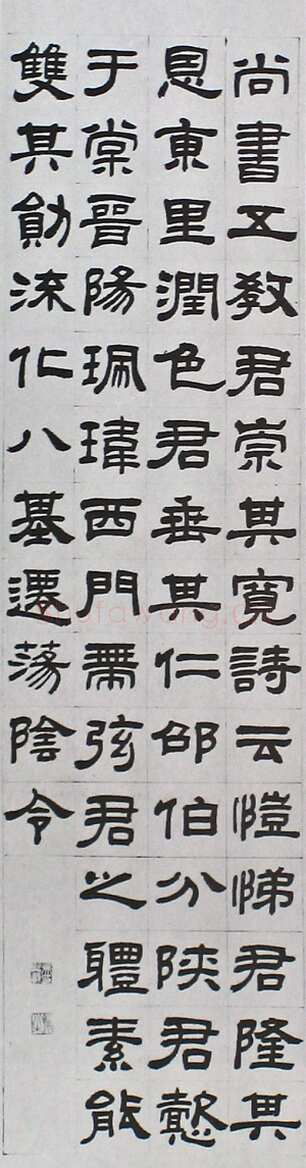 尚書五教君崇其寬詩云愷悌君隆其
恩東里潤色君垂其仁邵伯分陝君懿
于棠晉陽珮瑋西門帶弦君之體素能
雙其勛流化八基遷蕩陰令